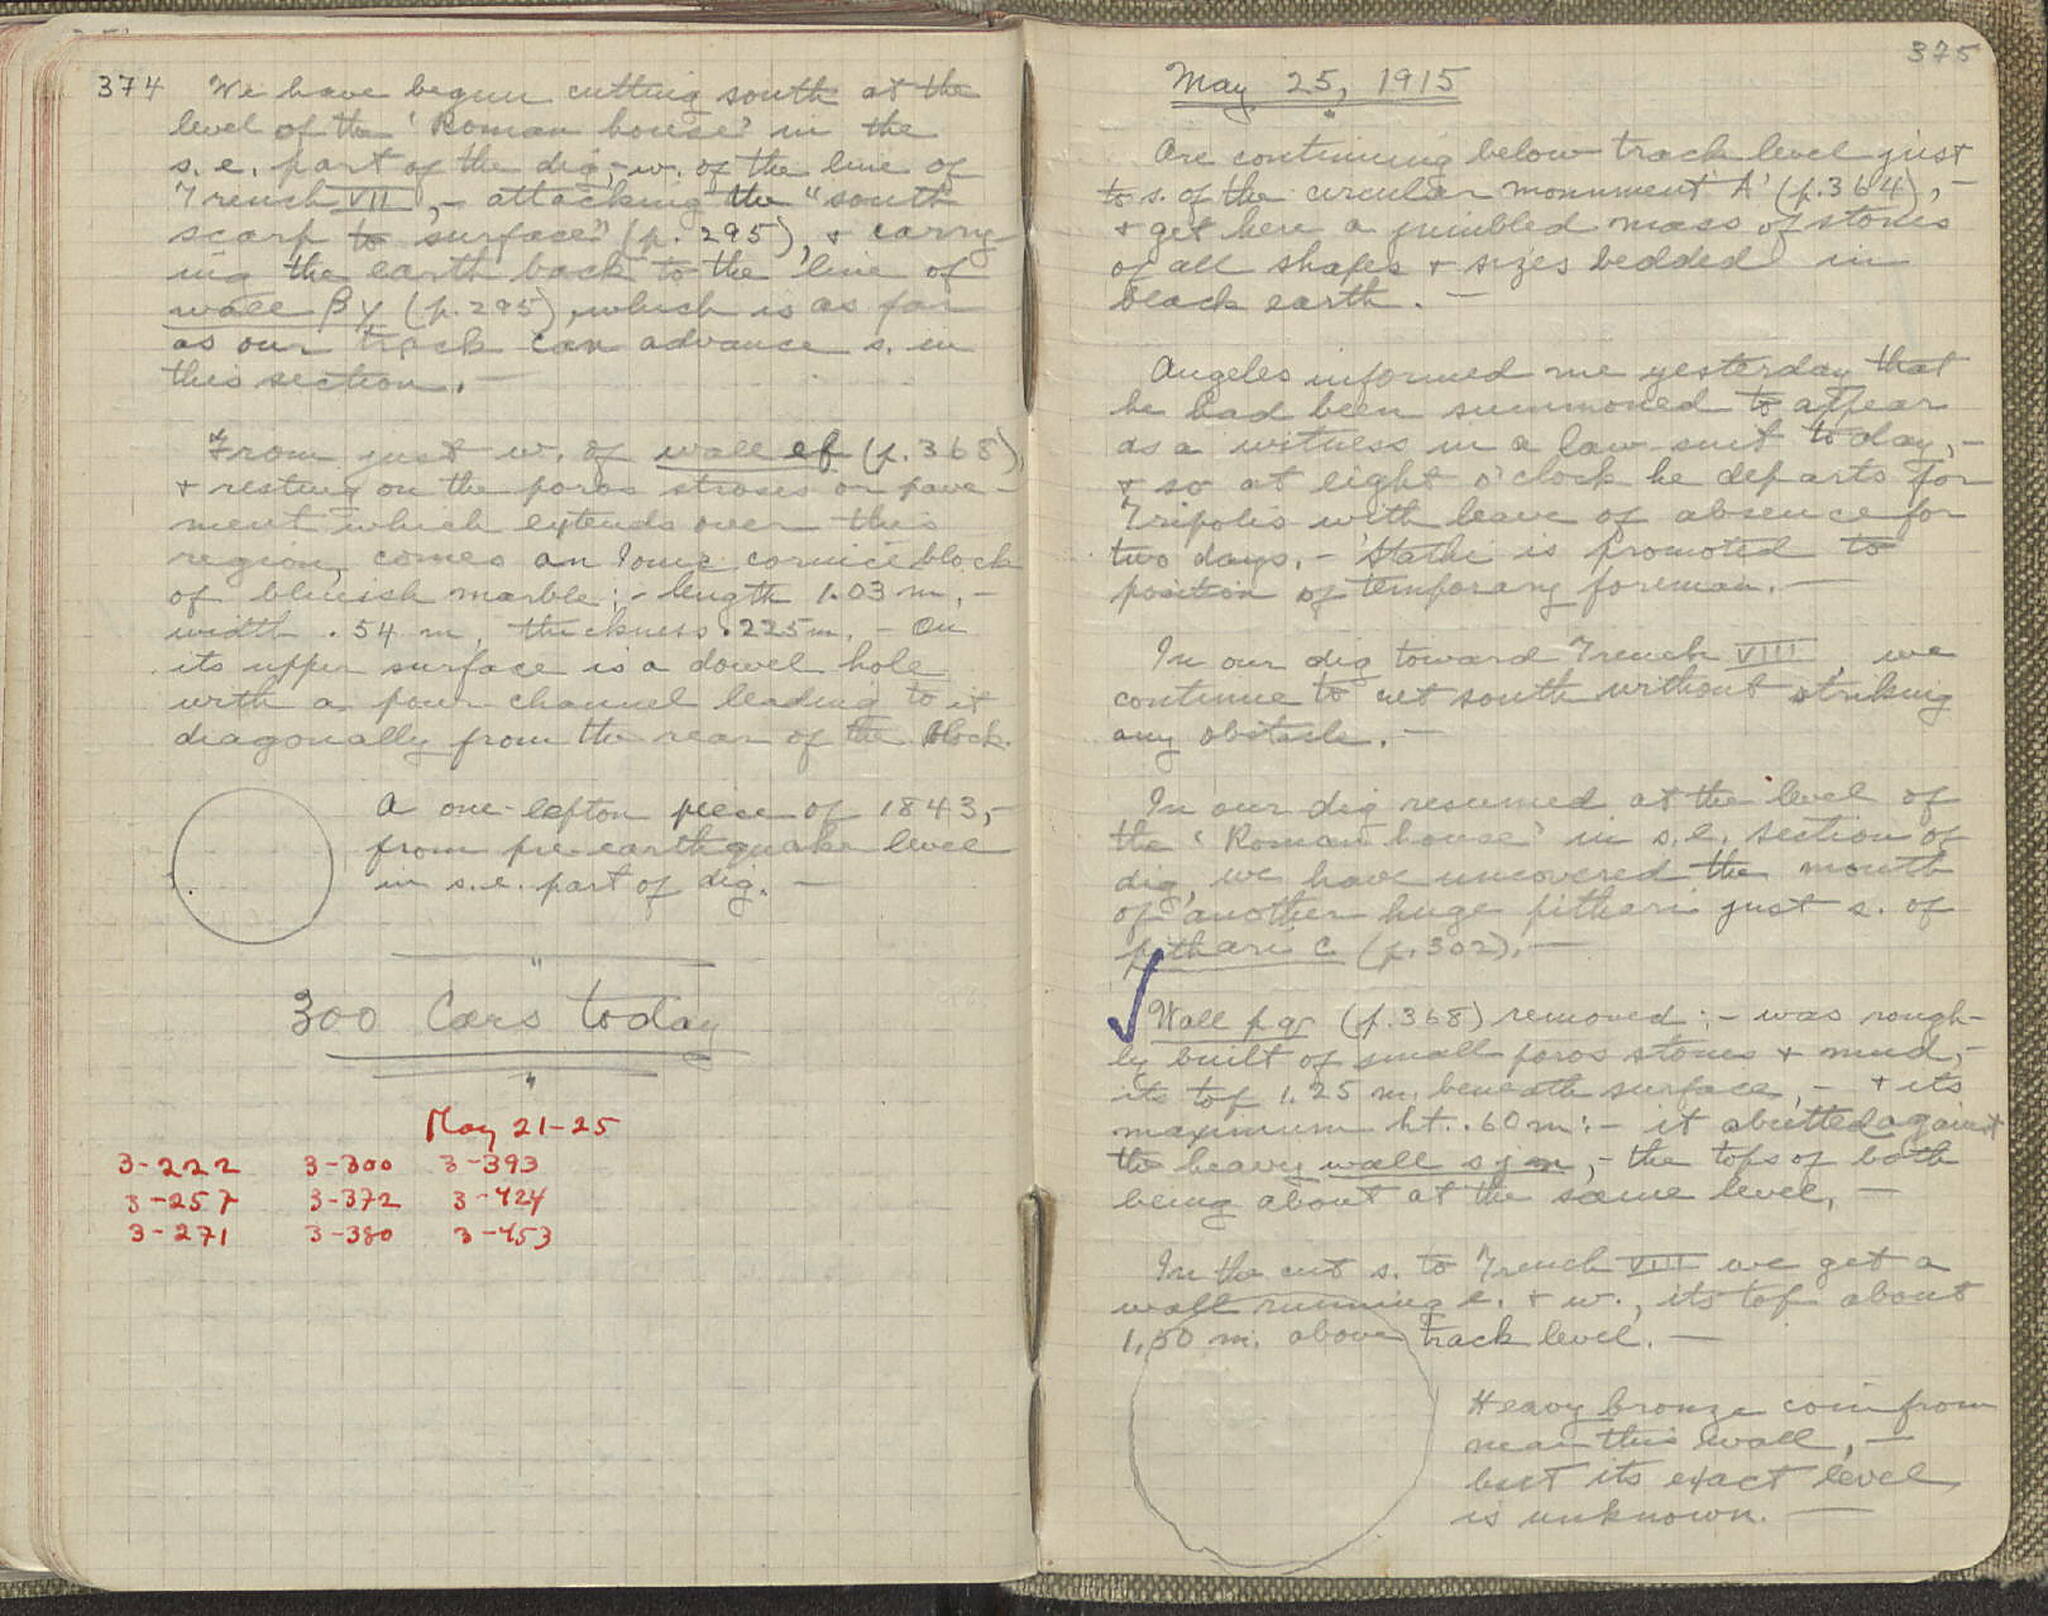 374
We have begun cutting south at the
level of the 'Roman house' in the
s.e. part of the dig, - w. of the line of
Trench VII, - attacking the "south
scarp to surface" (p. 295), + carry-
ing the earth back to the line of
wall βγ (p. 295), which is as far
as our track can advance s. in
this section. -
From just w. of wall ef (p. 368),
+ resting on the poros stroses or pave-
ment which extends over this
region, comes an Ionic cornice block
of bluish marble: - length 1.03 m, -
width .54 m, thickness .225 m. - On
its upper surface is a dowel hole
with a pour channel leading to it
diagonally from the rear of the block.
A one-lepton piece of 1843, -
from pre-earthquake level
in s.e. part of dig. -
300 Cars today
May 21-25
3-222 3-300 3-393
3-257 3-372 3-424
3-271 3-380 3-453
375
May 25, 1915
Are continuing below track level just
to s. of the circular monument 'A' (p. 364), -
+ get here a jumbled mass of stones
of all shapes + sizes bedded in
black earth. -
Angeles informed me yesterday that
he had been summoned to appear
as a witness in a law suit today, -
+ so at eight o'clock he departs for
Tripolis with leave of absence for
two days. - Stathi is promoted to
position of temporary foreman. -
In our dig toward Trench VIII, we
continue to cut south without striking
any obstacle. -
In our dig resumed at the level of
the 'Roman house' in s.e. section of
dig, we have uncovered the mouth
of another huge pithari just s. of
pithari C (p. 302). -
Wall pqr (p. 368) removed: - was rough-
ly built of small poros stones + mud, -
its top 1.25 m. beneath surface, - + its
maximum ht. .60 m: - it abutted against
the heavy wall, - the tops of both
being about at the same level. -
In the cut s. to Trench VIII we get a
wall running e. + w., its top about
1.50 m. above track level. -
Heavy bronze coin from
near this wall, -
but its exact level
is unknown. -